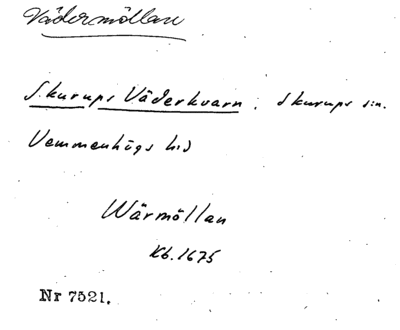 Vädermöllan
Skurups Väderkvarn, Skurups sn.
Vemmenhögs hd
Wärmöllan
Kb. 1675
Nr 7521.